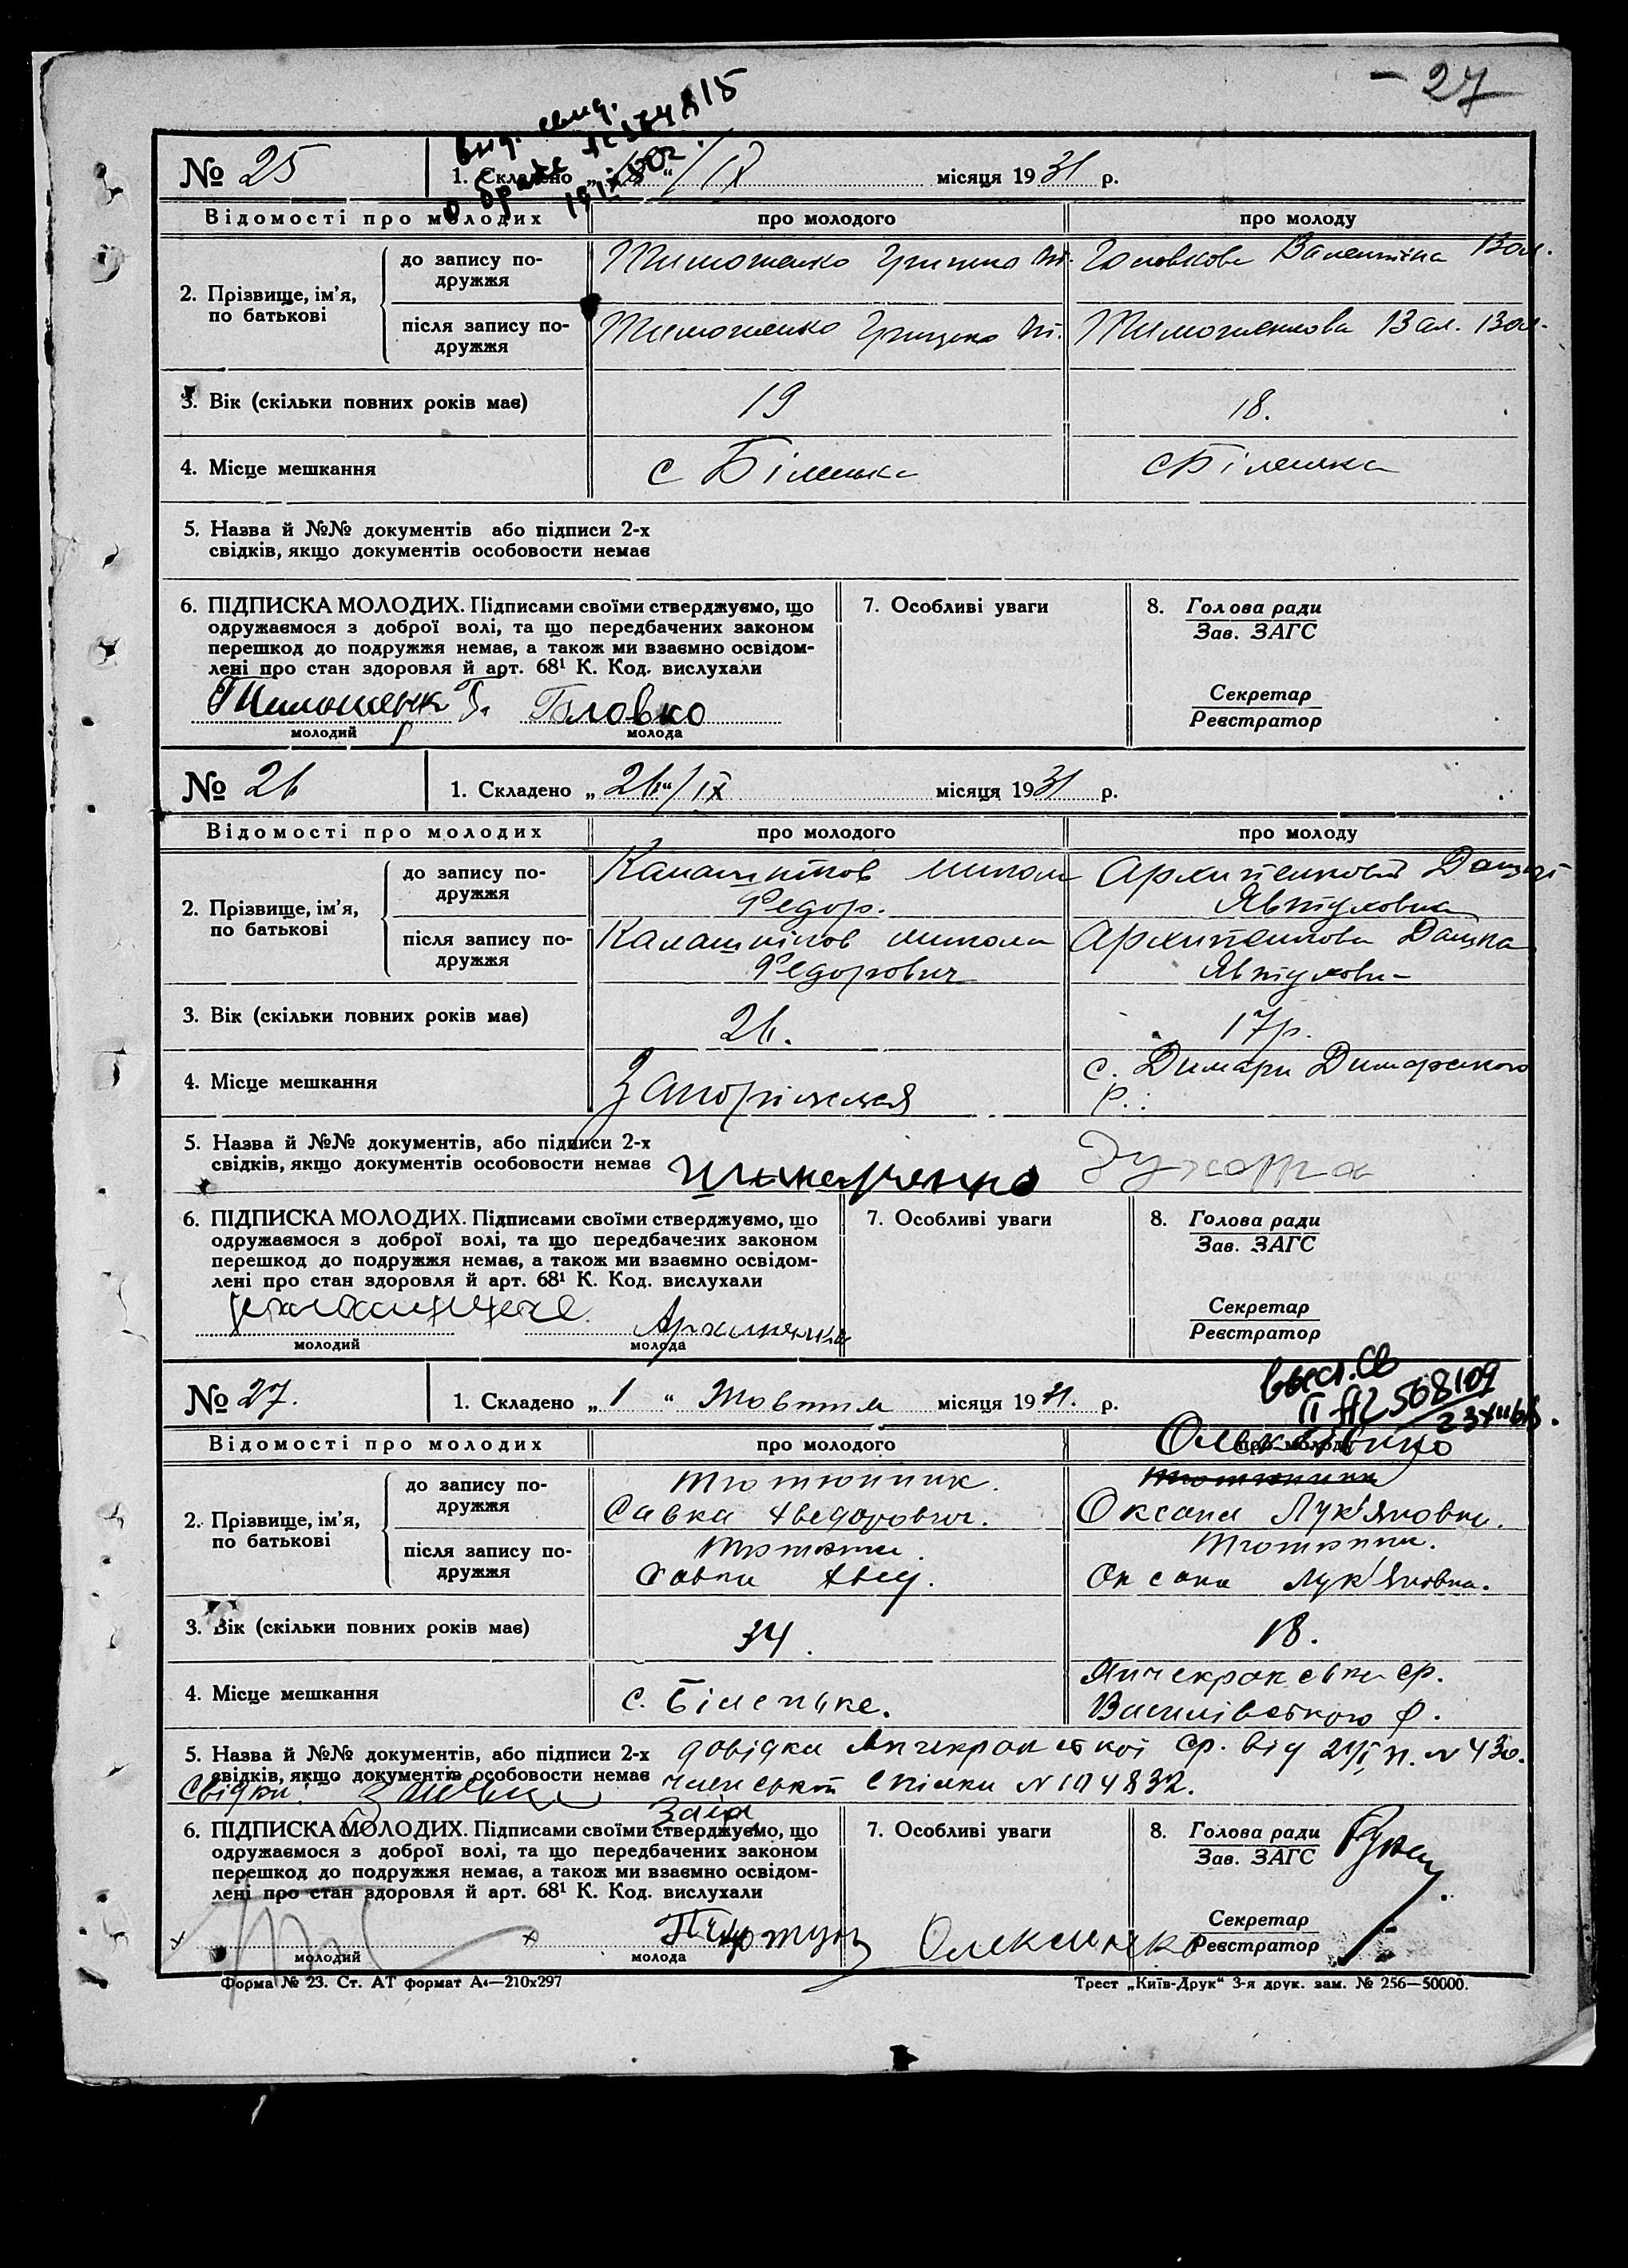 27
вид. свид.
о браке
№ 25
1. Складено „18“/IX місяця 1931 р.
Відомості про молодих
про молодого
про молоду
2. Прізвище, ім'я, по батькові
до запису по-
дружжя
Тимошенко
Головкова Валентіна Вол.
після запису по-
дружжя
Тимошенко Грицько
Тимошенкова Вал. Вол.
3. Вік (скільки повних років має)
19
18.
4. Місце мешкання
с Біленька
с Біленька
5. Назва й №№ документів або підписи 2-х
свідків, якщо документів особовости немає
6. ПІДПИСКА МОЛОДИХ. Підписами своїми стверджуємо, що
одружаємося з доброї волі, та що передбачених законом
перешкод до подружжя немає, а також ми взаємно освідом-
лені про стан здоровля й арт. 68¹ К. Код. вислухали
Головко
молодий
молода
7. Особливі уваги
8. Голова ради
Зав. ЗАГС
Секретар
Реєстратор
№ 26
1. Складено „26“/IX місяця 1931 р.
Відомості про молодих
про молодого
про молоду
2. Прізвище, ім'я, по батькові
до запису по-
дружжя
Калашніков Микола
Федор.
Явтуховна
після запису по-
дружжя
Калашніков Микола
Федорович
Архипенкова Дашка
3. Вік (скільки повних років має)
26.
17р.
4. Місце мешкання
Запоріжжя
с. Димари
р.
5. Назва й №№ документів, або підписи 2-х
свідків, якщо документів особовости немає
6. ПІДПИСКА МОЛОДИХ. Підписами своїми стверджуємо, що
одружаємося з доброї волі, та що передбачених законом
перешкод до подружжя немає, а також ми взаємно освідом-
лені про стан здоровля й арт. 68¹ К. Код. вислухали
молодий
молода
7. Особливі уваги
8. Голова ради
Зав. ЗАГС
Секретар
Реєстратор
№ 27.
1. Складено „1“ Жовтня місяця 1931. р.
568109
Відомості про молодих
про молодого
про молоду
2. Прізвище, ім'я, по батькові
до запису по-
дружжя
Тютюнник.
Савка Хведорович.
Оксана Лук'яновна.
після запису по-
дружжя
Савка Хвед.
Оксана Лук'яновна.
3. Вік (скільки повних років має)
34.
18.
4. Місце мешкання
с. Біленьке.
Янчекракська ср.
Василівського р.
5. Назва й №№ документів, або підписи 2-х
свідків, якщо документів особовости немає
довідка Янчекракської ср. від
Свідки:
спілки N 104832.
6. ПІДПИСКА МОЛОДИХ. Підписами своїми стверджуємо, що
одружаємося з доброї волі, та що передбачених законом
перешкод до подружжя немає, а також ми взаємно освідом-
лені про стан здоровля й арт. 68¹ К. Код. вислухали
молодий
молода
7. Особливі уваги
8. Голова ради
Зав. ЗАГС
Секретар
Реєстратор
Форма № 23. Ст. АТ формат А₄—210х297
Трест „Київ-Друк“ 3-я друк. зам. № 256—50000.